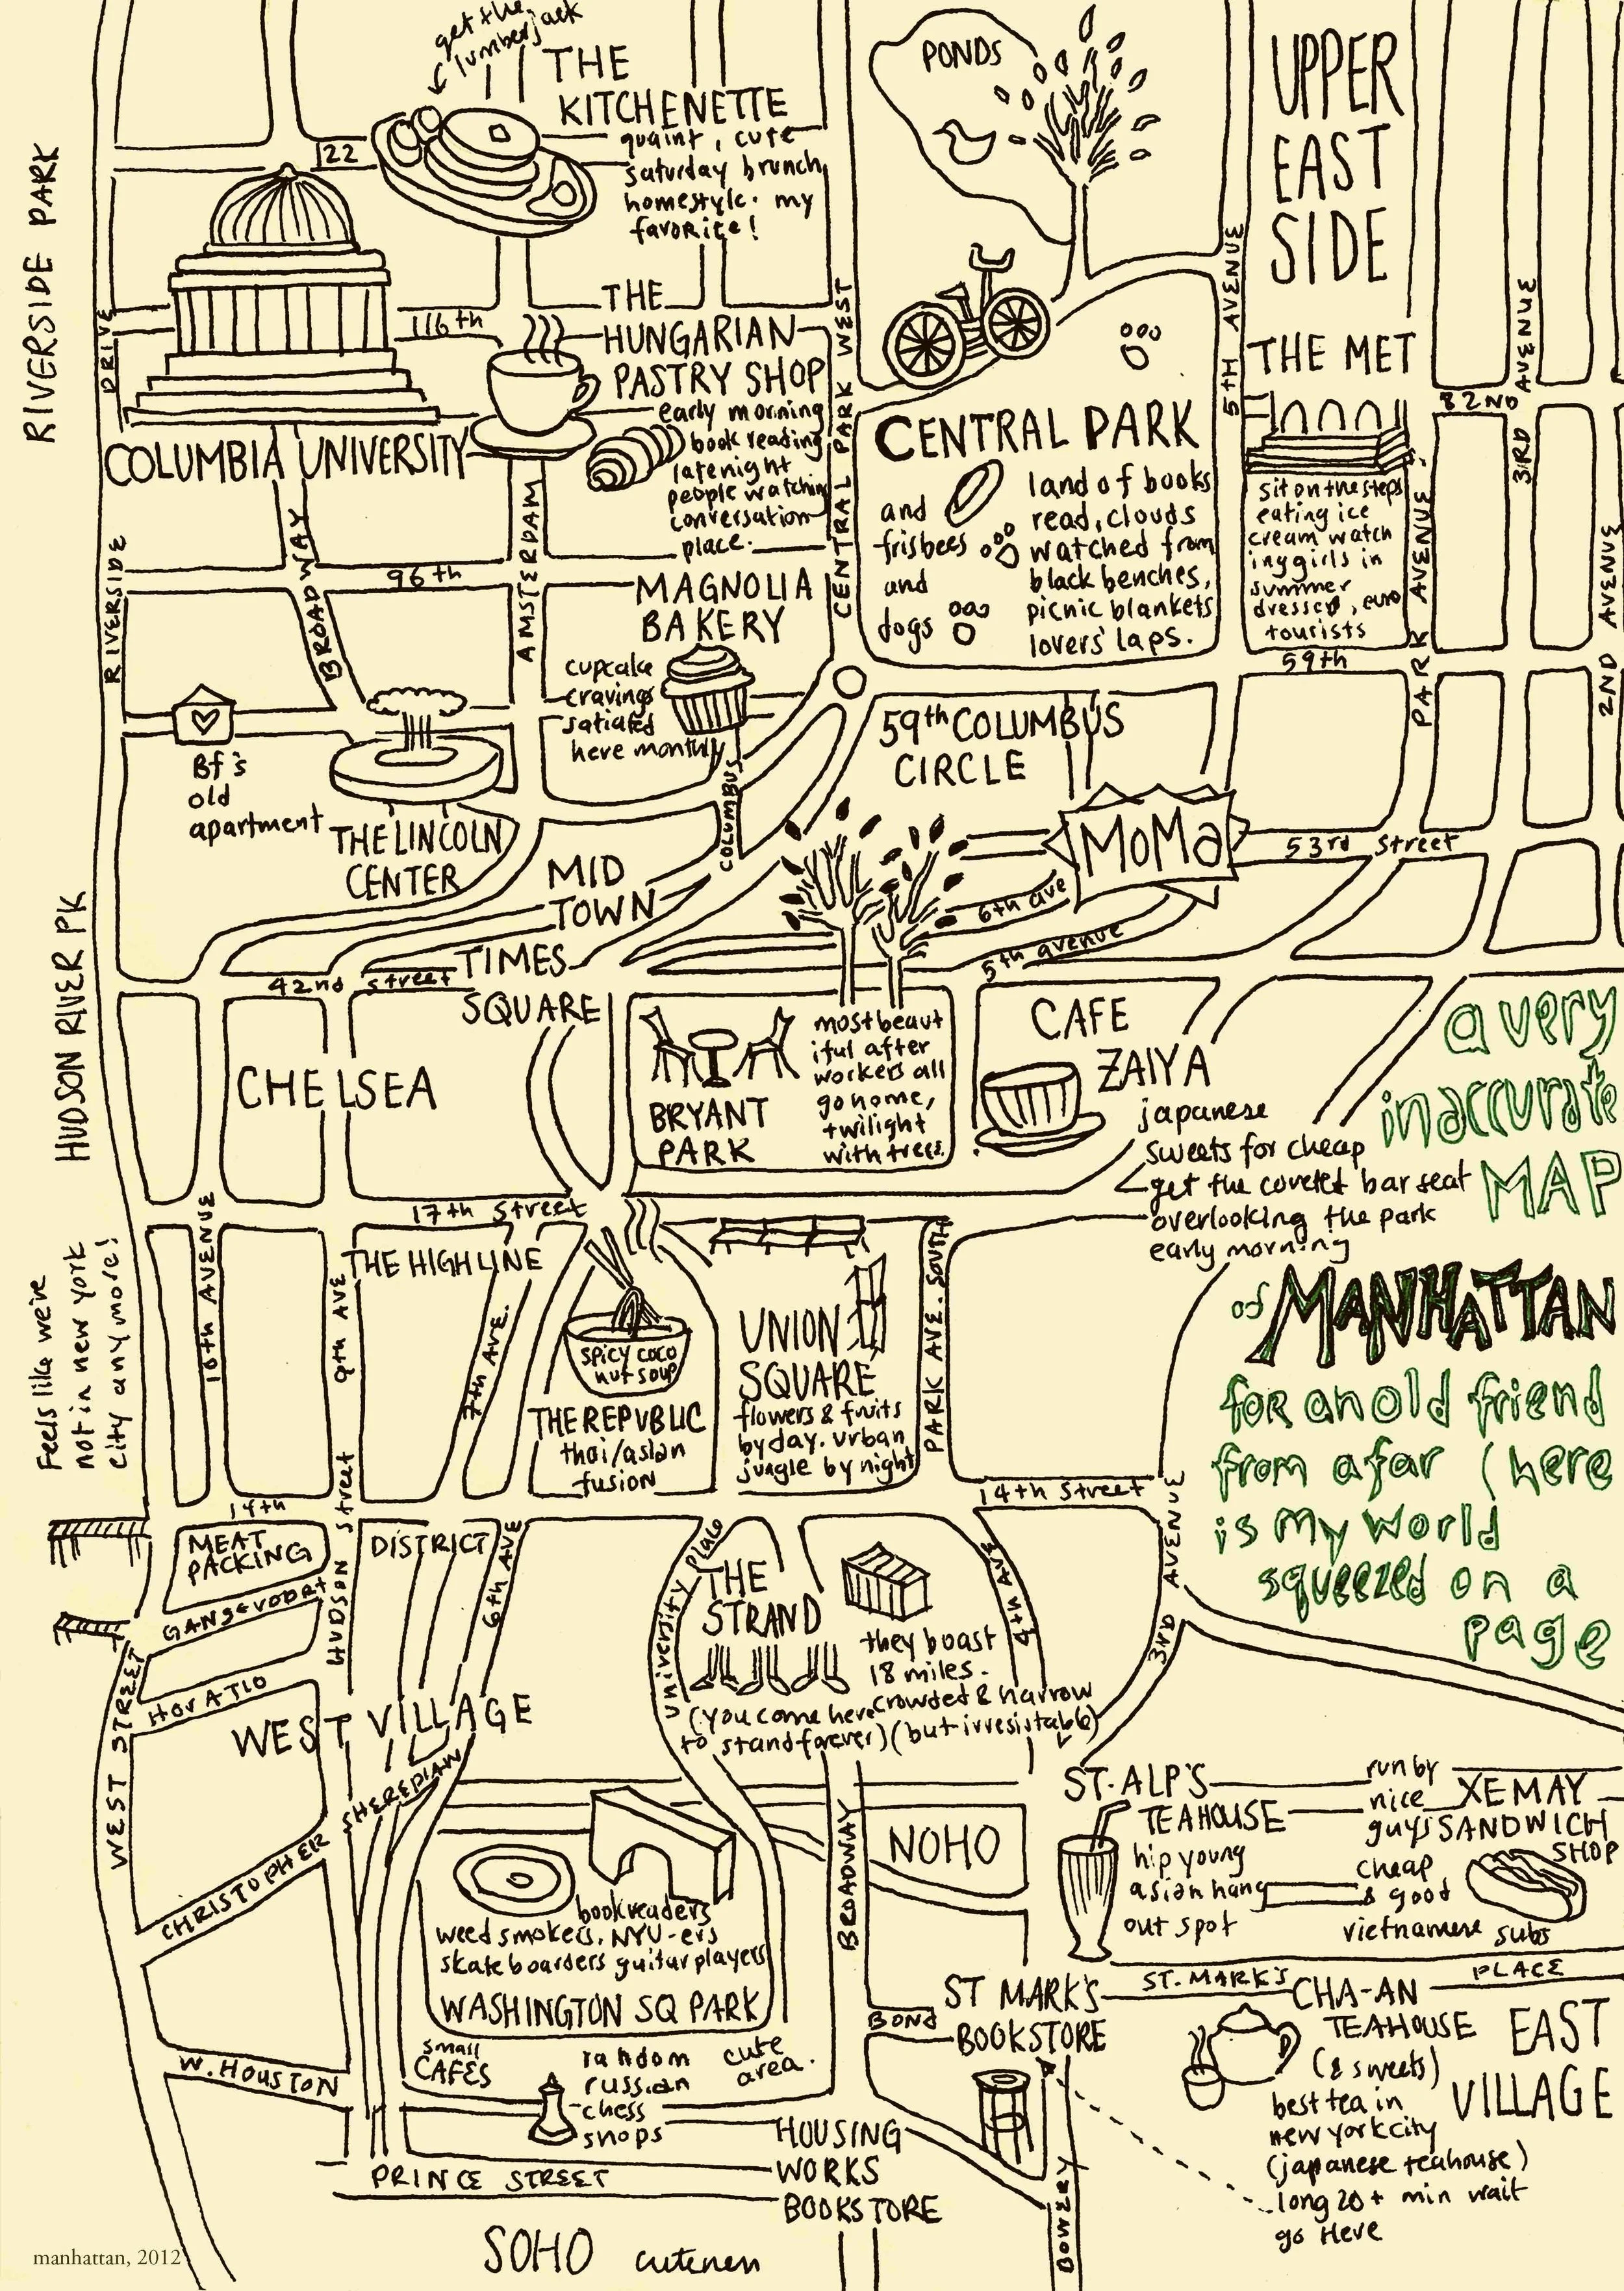 get the
lumberjack
THE
KITCHENETTE
quaint, cute
saturday brunch,
homestyle. my
favorite!
122
RIVERSIDE PARK
RIVERSIDE
DRIVE
116th
COLUMBIA UNIVERSITY
THE
HUNGARIAN
PASTRY SHOP
early morning
book reading
late night
people watching
conversation
place.
CENTRAL PARK WEST
PONDS
CENTRAL PARK
land of books
read, clouds
watched from
black benches,
picnic blankets
lovers' laps.
and
frisbees
and
dogs
5TH AVENUE
UPPER
EAST
SIDE
THE MET
82ND
sit on the steps
eating ice
cream watch
ing girls in
summer
dresses, euro
tourists
PARK AVENUE
3RD AVENUE
2ND AVENUE
59th
BROADWAY
AMSTERDAM
96th
MAGNOLIA
BAKERY
cupcake
cravings
satiated
here monthly
COLUMBUS
Bf's
old
apartment
THE LINCOLN
CENTER
59th COLUMBUS
CIRCLE
MoMa
53rd Street
6th ave
5th avenue
MID
TOWN
TIMES
SQUARE
42nd street
HUDSON RIVER PK
CHELSEA
BRYANT
PARK
most beaut
iful after
workers all
go home,
twilight
with trees.
CAFE
ZAIYA
japanese
sweets for cheap
get the coveted bar seat
overlooking the park
early morning
a very
inaccurate
MAP
of MANHATTAN
for an old friend
from afar (here
is my world
squeezed on a
page
17th Street
10th AVENUE
9th AVE
7th AVE.
THE HIGHLINE
Feels like we're
not in new york
city anymore!
spicy coco
nut soup
THE REPVBLIC
thai/asian
fusion
UNION
SQUARE
flowers & fruits
by day. urban
jungle by night
PARK AVE. SOUTH
14th
14th Street
MEAT
PACKING
DISTRICT
GANSEVOORT
HORATIO
HUDSON Street
6th AVE
University Place
THE
STRAND
they boast
18 miles.
crowded & narrow
(but irresistable)
(you come here
to stand forever)
4th AVE
3RD AVENUE
WEST STREET
WEST VILLAGE
CHRISTOPHER
SHERIDAN
bookreaders
weed smokers, NYU-ers
skateboarders guitar players
WASHINGTON SQ PARK
BROADWAY
NOHO
ST. ALP'S
TEAHOUSE
hip young
asian hang
out spot
run by
nice
guys
XE MAY
SANDWICH
SHOP
cheap
& good
vietnamese subs
ST. MARK'S PLACE
ST MARK'S
BOOKSTORE
BOND
CHA-AN
TEAHOUSE
(& sweets)
best tea in
new york city
(japanese teahouse)
long 20+ min wait
go Here
EAST
VILLAGE
W. HOUSTON
small
CAFES
random
russian
chess
shops
cute
area.
HOUSING
WORKS
BOOKSTORE
PRINCE STREET
BOWERY
SOHO
manhattan, 2012